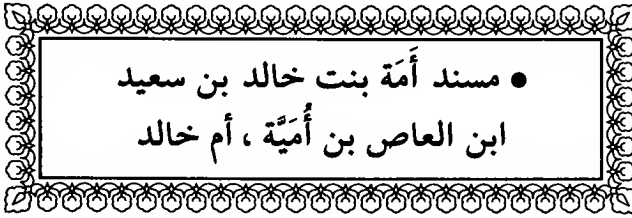 ● مسند أَمَة بنت خالد بن سعيد
ابن العاص بن أُمَيَّة ، أم خالد